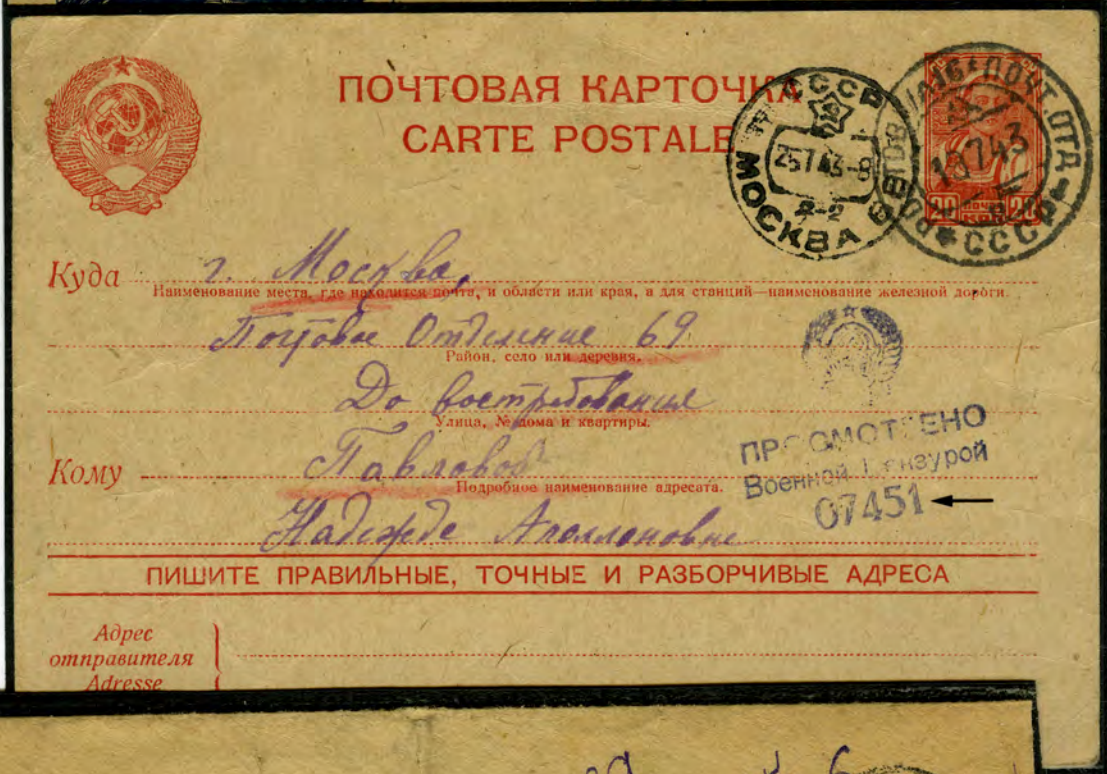 ПОЧТОВАЯ КАРТОЧКА
CARTE POSTALE
СССР
МОСКВА
ПОЧТ.ОТД
СССР
20 ПОЧТА 20
Куда г. Москва,
Наименование места, где находится почта, и области или края, а для станций—наименование железной дороги.
Почтовое Отделение 69
Район, село или деревня.
До востребования
Улица, № дома и квартиры.
Кому Павловой
Подробное наименование адресата.
Надежде Аполлоновне
ПРОСМОТРЕНО
Военной Цензурой
07451
ПИШИТЕ ПРАВИЛЬНЫЕ, ТОЧНЫЕ И РАЗБОРЧИВЫЕ АДРЕСА
Адрес
отправителя
Adresse